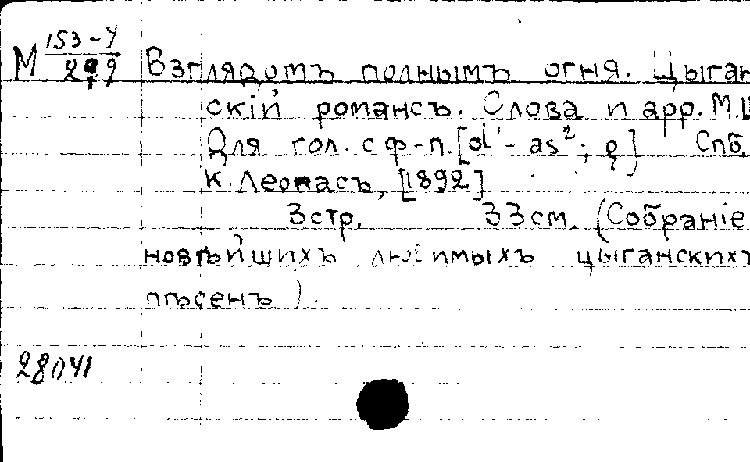 М 153-У/299 Взглядомъ полнымъ огня. Цыган
скій романсъ. Слова и арр. М.Ш
Для гол. с ф-п. [d'-as²; e] Спб.
К. Леопасъ, [1892]
3 стр. 33 см. (Собраніе
новѣйшихъ любимыхъ цыганскихъ
пѣсенъ).
28041